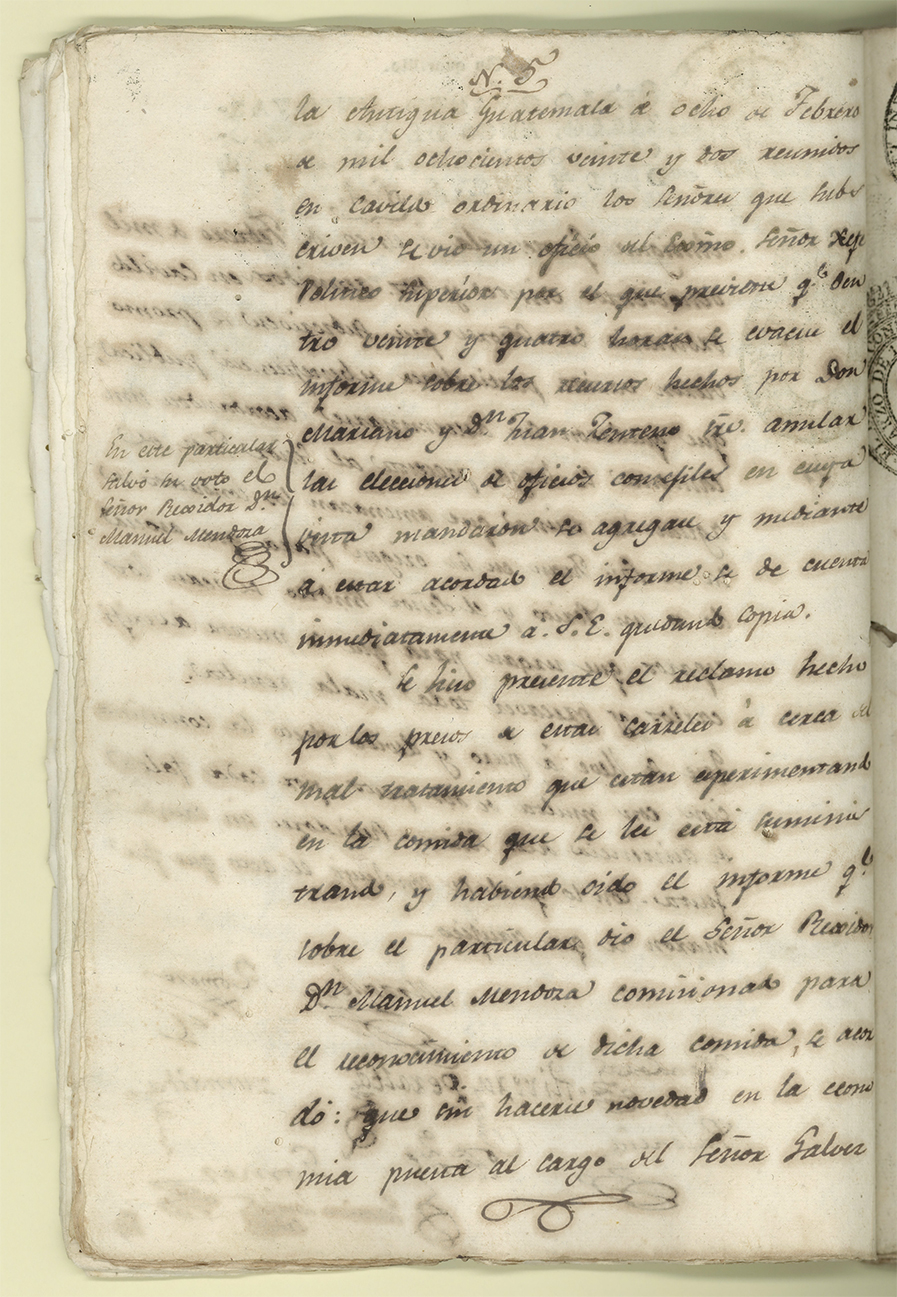 N. 5
la Antigua Guatemala á ocho de Febrero
de mil ochocientos veinte y dos reunidos
en Cavildo ordinario los Señores que subs
criven se vio un oficio del Exmo. Señor Xefe
Politico Superior por el que previene q.e den
tro veinte y quatro horas se evacue el
informe sobre los recursos hechos por Don
Mariano y D.n Juan Zenteno sre. anular
las elecciones de oficios consejiles en cuya
vista mandaron se agregase y mediante
á estar acordado el informe se de cuenta
inmediatamente a. S. E. quedando copia.
Se hiso presente el reclamo hecho
por los presos de estas carseles á cerca del
mal tratamiento que estan esperimentando
en la comida que se les está suminis
trando, y habiendo oido el informe q.e
sobre el particular, dio el Señor Rexidor
D.n Manuel Mendoza comicionado para
el reconocimiento de dicha comida, se acor
dó: que sin hacerse novedad en la econo
mia puesta al cargo del Señor Galvez
En este particular
salvó su voto el
Señor Rexidor D.n
Manuel Mendoza